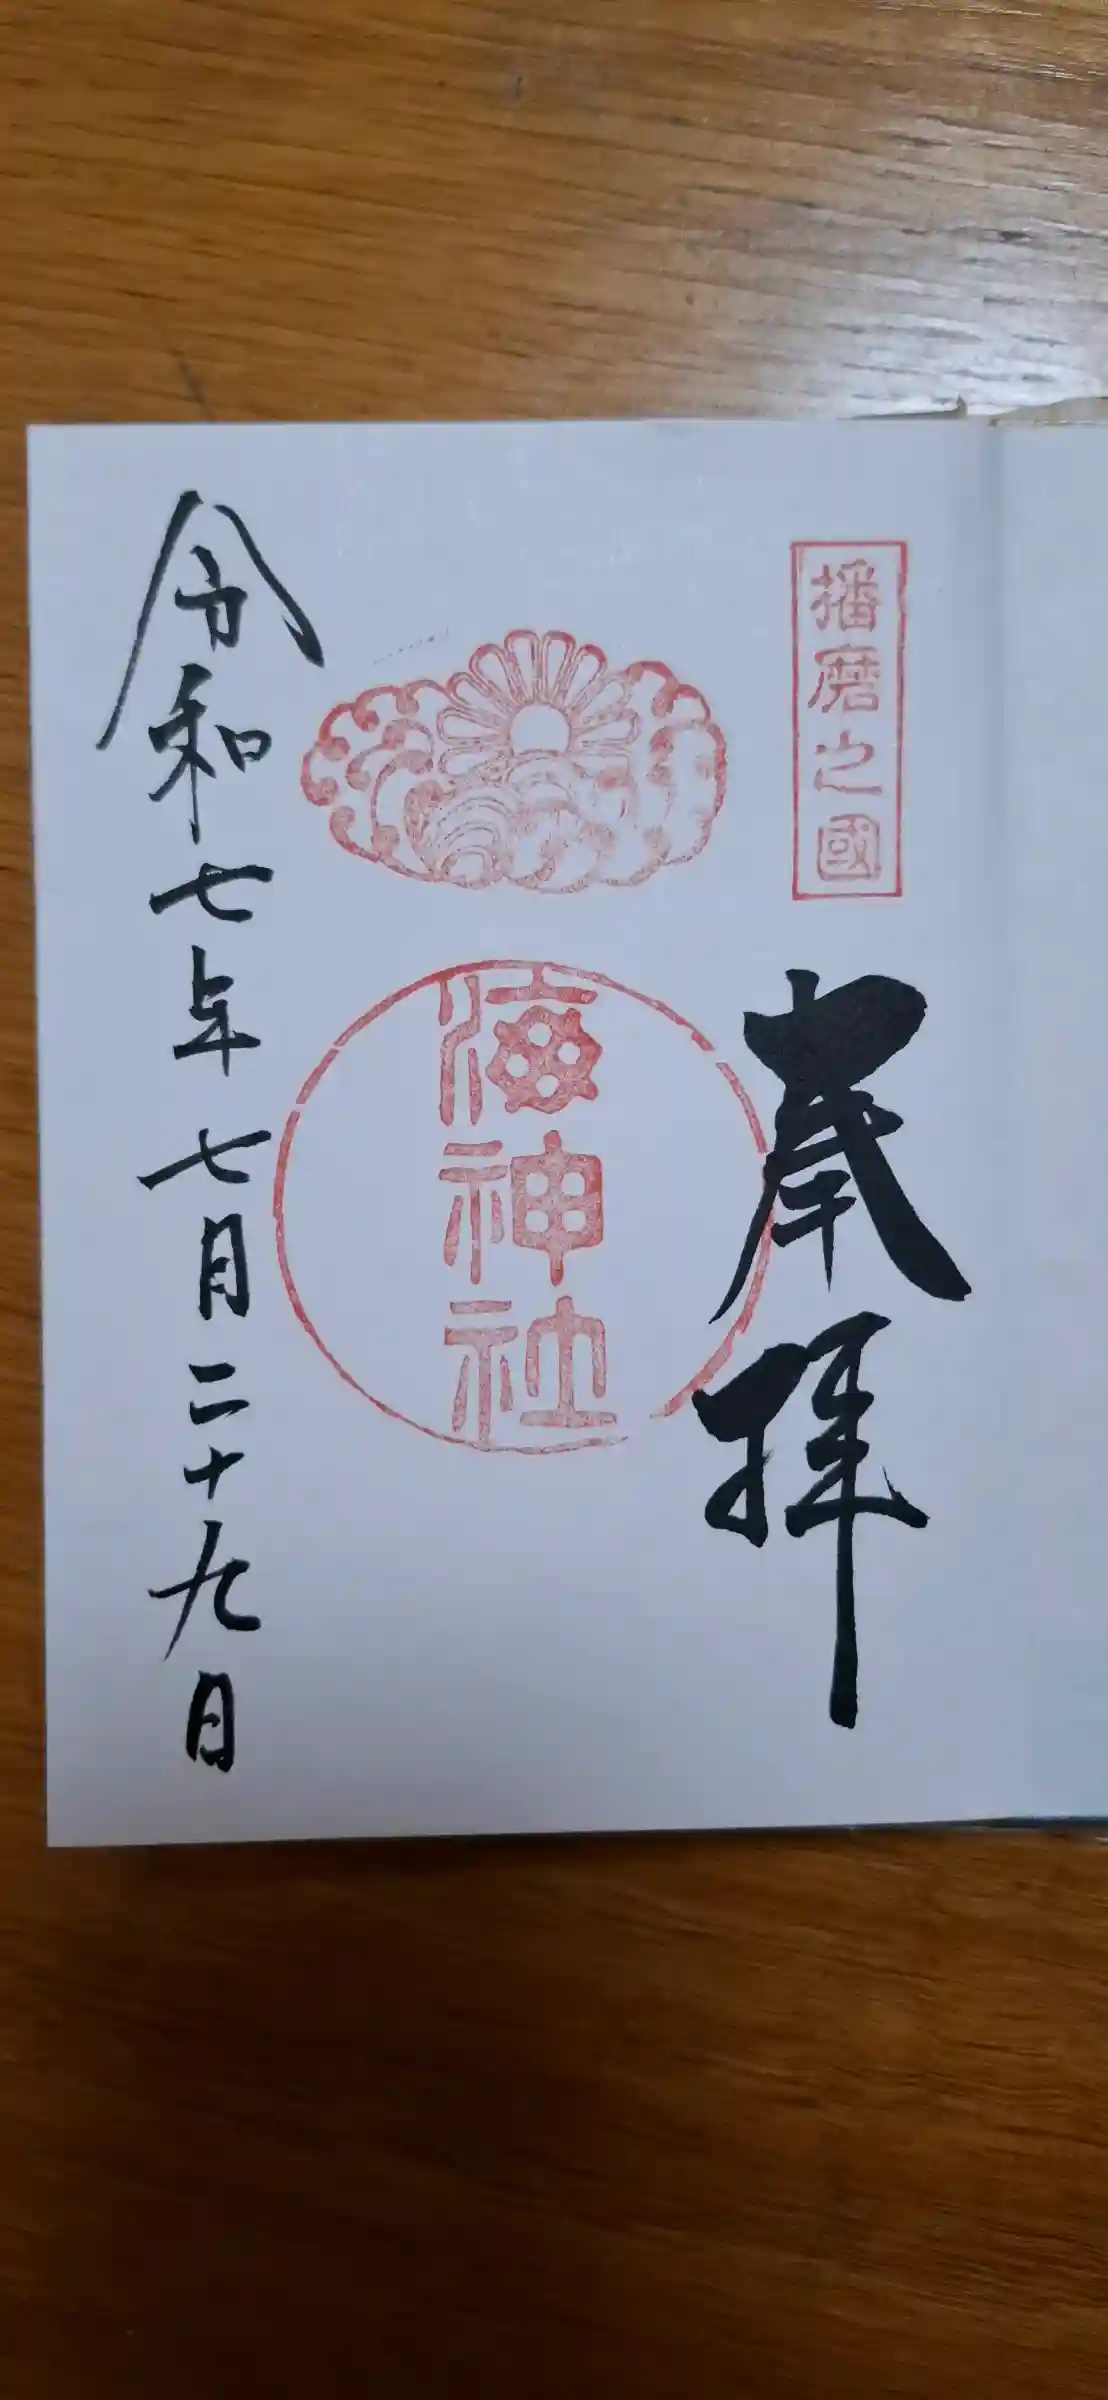 播磨之國
奉拝
海神社
令和七年七月二十九日